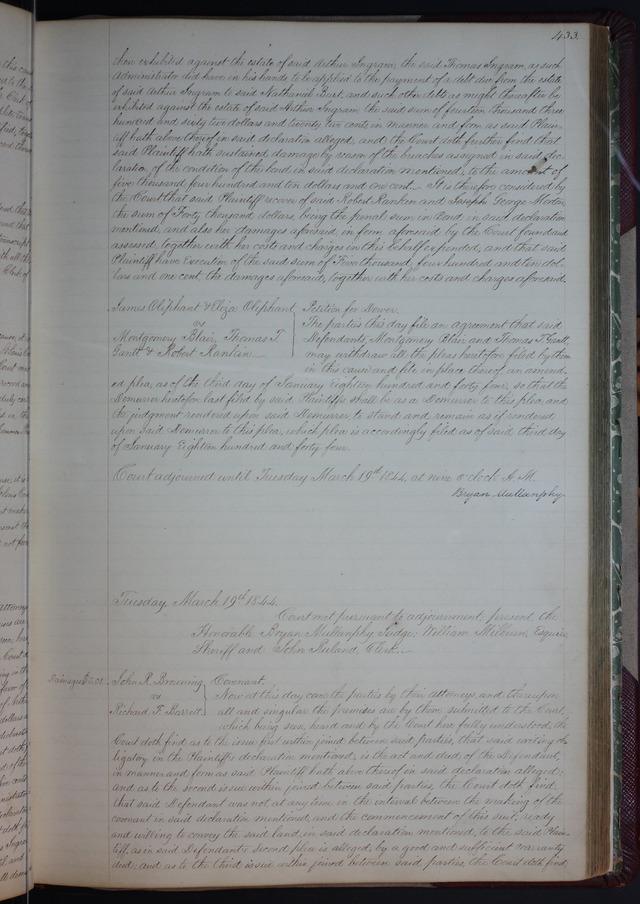 433.
then exhibited against the estate of said Arthur Ingram, the said Thomas Ingram, as such
administrator did have in his hands to be applied to the payment of a debt due from the estate
of said Arthur Ingram to said Nathaniel and such other debts as might thereafter be
exhibited against the estate of said Arthur Ingram the said sum of fourteen thousand three
hundred and sixty two dollars and twenty two cents in manner and form as said Plain-
tiff hath above thereof in said declaration alleged, and the Court doth further find that
said Plaintiff hath sustained damage by reason of the breaches assigned in said dec-
laration, of the condition of the bond in said declaration mentioned, to the amount of
five thousand, four hundred and ten dollars and one cent. It is therefore considered by
the Court that said Plaintiff recover of said Robert Ranken and Joseph George
the sum of Forty thousand dollars, being the penal sum in Bond in said declaration
mentioned, and also her damages aforesaid, in form aforesaid by the Court found and
assessed, together with her costs and charges in this behalf expended; and that said
Plaintiff have Execution of the said sum of Five thousand, four hundred and ten dol-
lars and one cent, the damages aforesaid, together with her costs and charges aforesaid.
James Oliphant & Eliza Oliphant
vs
Montgomery Blair, Thomas T.
Gantt & Robert Ranken
Petition for Dower.
The parties this day file an agreement that said
Defendants, Montgomery Blair and Thomas T. Gantt,
may withdraw all the pleas heretofore filed by them
in this cause and file in place thereof an amend-
ed plea, as of the third day of January Eighteen hundred and forty four, so that the
Demurrer heretofore last filed by said Plaintiffs shall be as a Demurrer to this plea, and
the judgment rendered upon said Demurrer to stand and remain as if rendered
upon said Demurrer to this plea, which plea is accordingly filed as of said third day
of January Eighteen hundred and forty four.
Court adjourned until Tuesday March 19th 1844, at nine o'clock A.M.
Bryan Mullanphy
Tuesday March 19th 1844.
Court met pursuant to adjournment; present, the
Honorable Bryan Mullanphy, Judge; William Milburn, Esquire,
Sheriff and John Ruland, Clerk.
John R. Browning
vs
Richard F. Barrett
Covenant.
Now at this day came the parties by their attorneys and thereupon
all and singular the premises are by them submitted to the Court,
which being seen, heard and by the Court here fully understood, the
Court doth find, as to the issue first within joined between said parties, that said writing ob-
ligatory, in the Plaintiffs declaration mentioned, is the act and deed of the Defendant,
in manner and form as said Plaintiff hath above thereof in said declaration alleged;
and as to the second issue within joined between said parties, the Court doth find
that said Defendant was not at any time in the interval between the making of the
covenant in said declaration mentioned, and the commencement of this suit, ready
and willing to convey the said land, in said declaration mentioned, to the said Plain-
tiff, as in said Defendants second plea is alleged, by a good and sufficient warranty
deed; and as to the third issue within joined between said parties, the Court doth find,